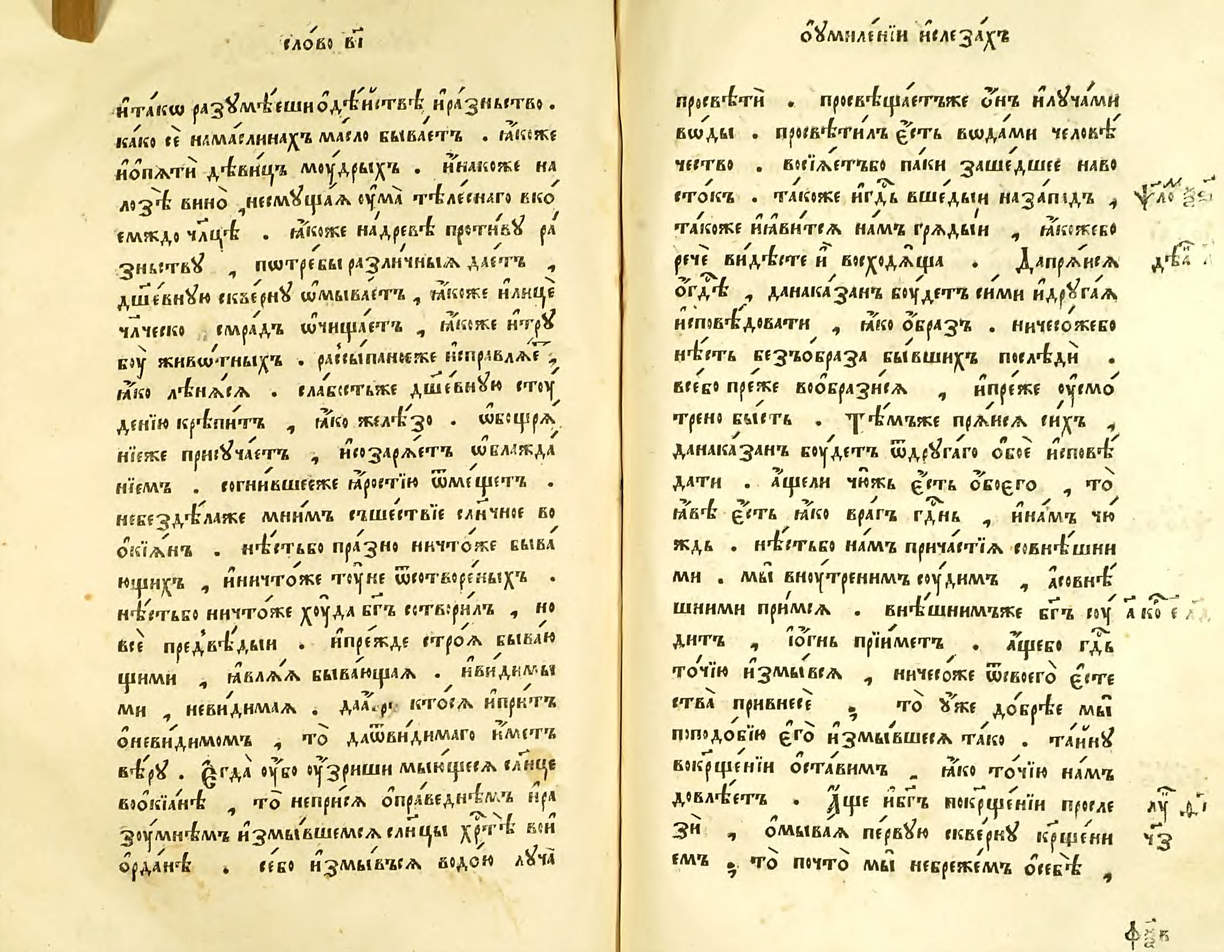 сло́во в҃і
и҆та́кѡ разꙋмѣ́еши ѻ҆дѣ́йствѣ и҆ра́зньство .
ка́ко сѐ нама́слинахъ ма́сло быва́етъ . ꙗ҆́коже
и҆ѻ҆пѧтѝ дѣ́вицъ моу́дрыхъ . и҆́накоже на
лозѣ̀ вино̀ , несмꙋща́ѧ оу҆ма̀ тѣле́снаго вко́
емждо чл҃цѣ . ꙗ҆́коже на́древѣ проти́вꙋ ра́
зньствꙋ , пѡтре́бы разли́чныѧ дае́тъ ,
дш҃е́внꙋю скве́рнꙋ ѡ҆мыва́етъ , ꙗ҆́коже и҆лицѐ
чл҃ческо смра́дъ ѡ҆чища́етъ , ꙗ҆́коже и҆трꙋ
боу̀ живѡ́тныхъ . разсы́паноеже и҆справлѧ́е ,
ꙗ҆́ко лѣнѧ́сѧ . сла́бостьже дш҃е́внꙋю стоу
де́нїю крѣпи́тъ , ꙗ҆́ко желѣ́зо . ѡ҆бощрѧ
нїеже присꙋча́етъ , и҆созарѧ́етъ ѡ҆блажда́
нїемъ . согни́вшееже ꙗ҆́ростїю ѿме́щетъ .
небездѣ́лаже мни́мъ съше́ствїе сл҃нчное во
ѻ҆кїѧ́нъ . нѣ́стьбо пра́зно ничто́же быва́
ющихъ , и҆ничто́же тоу́не ѿсотворе́ныхъ .
нѣ́стьбо ничто́же хоу́да бг҃ъ сотвори́лъ , но
всѐ предвѣ́дыи . и҆пре́жде стро́ѧ быва́ю
щими , ꙗ҆влѧ́ѧ быва́ющаѧ . и҆ви́димы
ми , неви́димаѧ . кто́сѧ и҆при́тъ
ѻ҆неви́димомъ , то̀ даѿви́димаго и҆́метъ
вѣ́рꙋ . Є҆гда̀ оу҆́бо оу҆́зриши мы́ющеесѧ сл҃нце
воѻ҆кїа́нѣ , то̀ непри́сѧ ѻ҆пра́веднѣмъ и҆ра
зоу́мнѣмъ и҆змы́вшемсѧ сл҃нцы хр҇тѣ̀ вои҆
ѻ҆рда́нѣ . се́бо и҆змы́въсѧ водо́ю лꙋча́
оу҆миле́нїи и҆слеза́хъ
просвѣтѝ . просвѣща́етъже ѻ҆́нъ и҆лꙋча́ми
вѡ́ды . просвѣти́лъ є҆́сть вѡда́ми человѣ́
чество . восїѧ́етъбо па́ки заше́дшее наво
сто́къ . та́коже и҆гд҇ь вше́дыи наза́падъ ,
та́коже и҆ꙗ҆́витсѧ на́мъ грѧды́и , ꙗ҆́коже́бо
речѐ ви́дѣсте и҆̀ восходѧ́ща . Дапрѧ́исѧ
ѻ҆гд҇ѣ , данака́занъ боу́детъ си́ми и҆дрꙋга́ѧ
и҆сповѣ́довати , ꙗ҆́ко ѻ҆́бразъ . ничесо́жебо
нѣ́сть безъѻ́браза бы́вшихъ послѣдѝ .
все́бо пре́же воѻбрази́сѧ , и҆пре́же оу҆смо́
трено бы́сть . Тѣ́мъже прѧ́исѧ си́хъ ,
данака́занъ боу́детъ ѿдрꙋга́гѻ ѻ҆́боѐ и҆сповѣ́
дати . а҆́щели чю́жь є҆́сть ѻ҆бо́єгѻ , то̀
ꙗ҆́вѣ є҆́сть ꙗ҆́ко вра́гъ гд҇нь , и҆на́мъ чю́
ждь . нѣ́стьбо на́мъ прича́стїѧ совнѣ́шни
ми . мы̀ вноу́треннимъ соу́димъ , а҆совнѣ́
шними при́мсѧ . внѣ́шнимъже бг҃ъ соу́
дитъ , і҆ѻ҆́гнь прїи́метъ . а҆́щебо гд҇ь
то́чїю и҆змы́всѧ , ничесо́же ѿсвоегѻ̀ є҆сте
ства̀ привнесѐ ; то̀ ᲂу҆́же до́брѣе мы̀
поподо́бїю є҆гѻ̀ и҆змы́вшесѧ та́ко . та́инꙋ
вокрще́нїи ѻ҆ста́вимъ , ꙗ҆́ко то́чїю на́мъ
довлѣ́етъ . А҆́ще и҆бг҃ъ покрще́нїи просле
зѝ , ѻ҆мыва́ѧ пе́рвꙋю скве́рнꙋ крще́ни
емъ ; то̀ почто̀ мы̀ небреже́мъ ѻ҆себѣ̀ ,